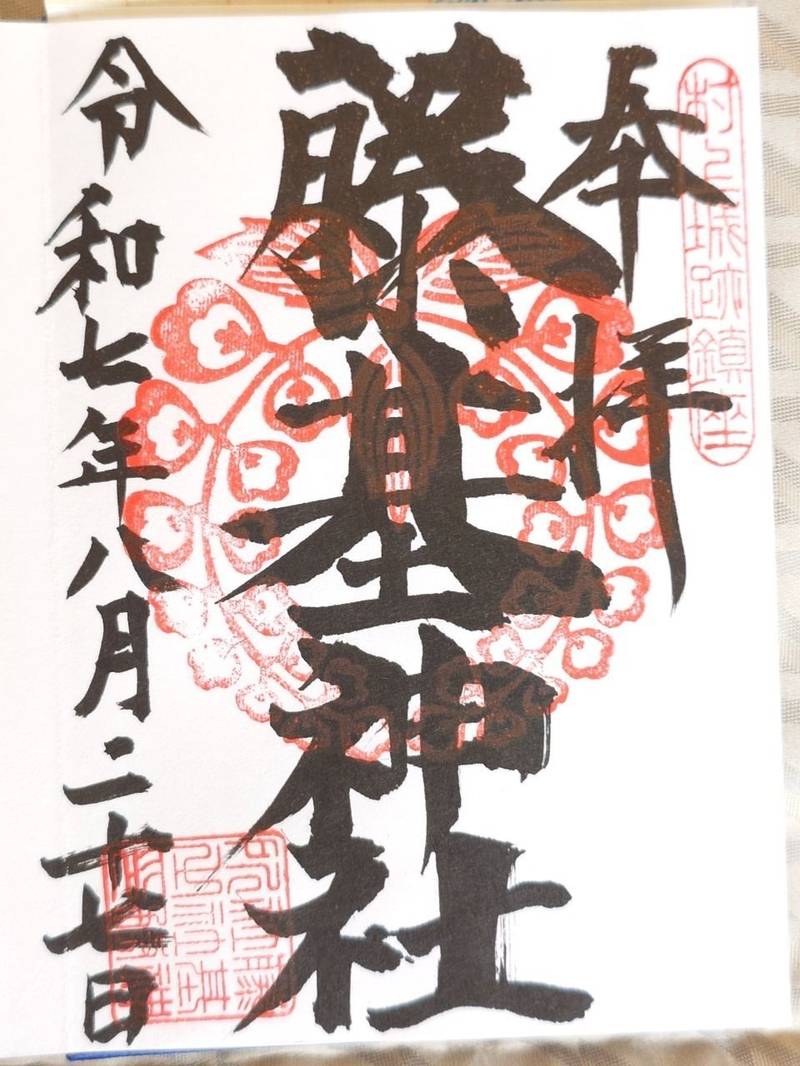 村上城跡鎮座
奉拝
藤基神社
令和七年八月二十七日